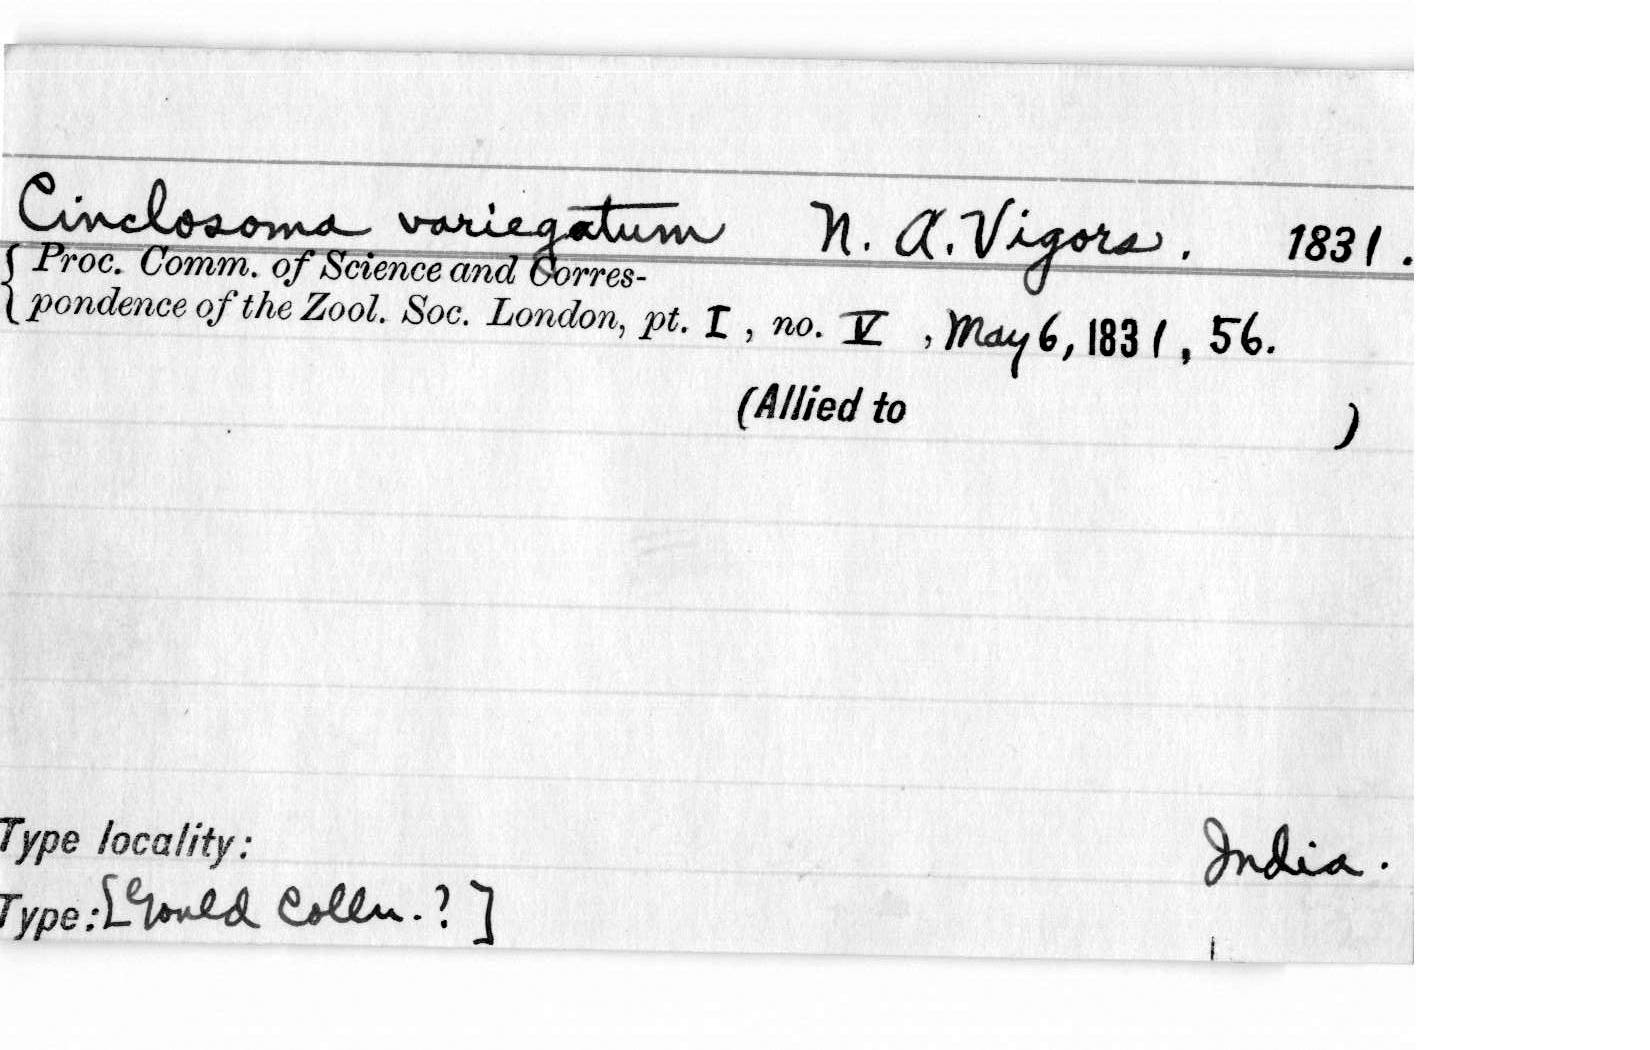 Cinclosoma variegatum N. A. Vigors. 1831.
Proc. Comm. of Science and Corres-
pondence of the Zool. Soc. London, pt. I, no. V, May 6, 1831, 56.
(Allied to )
Type locality: India.
Type: [Gould Colln.?]